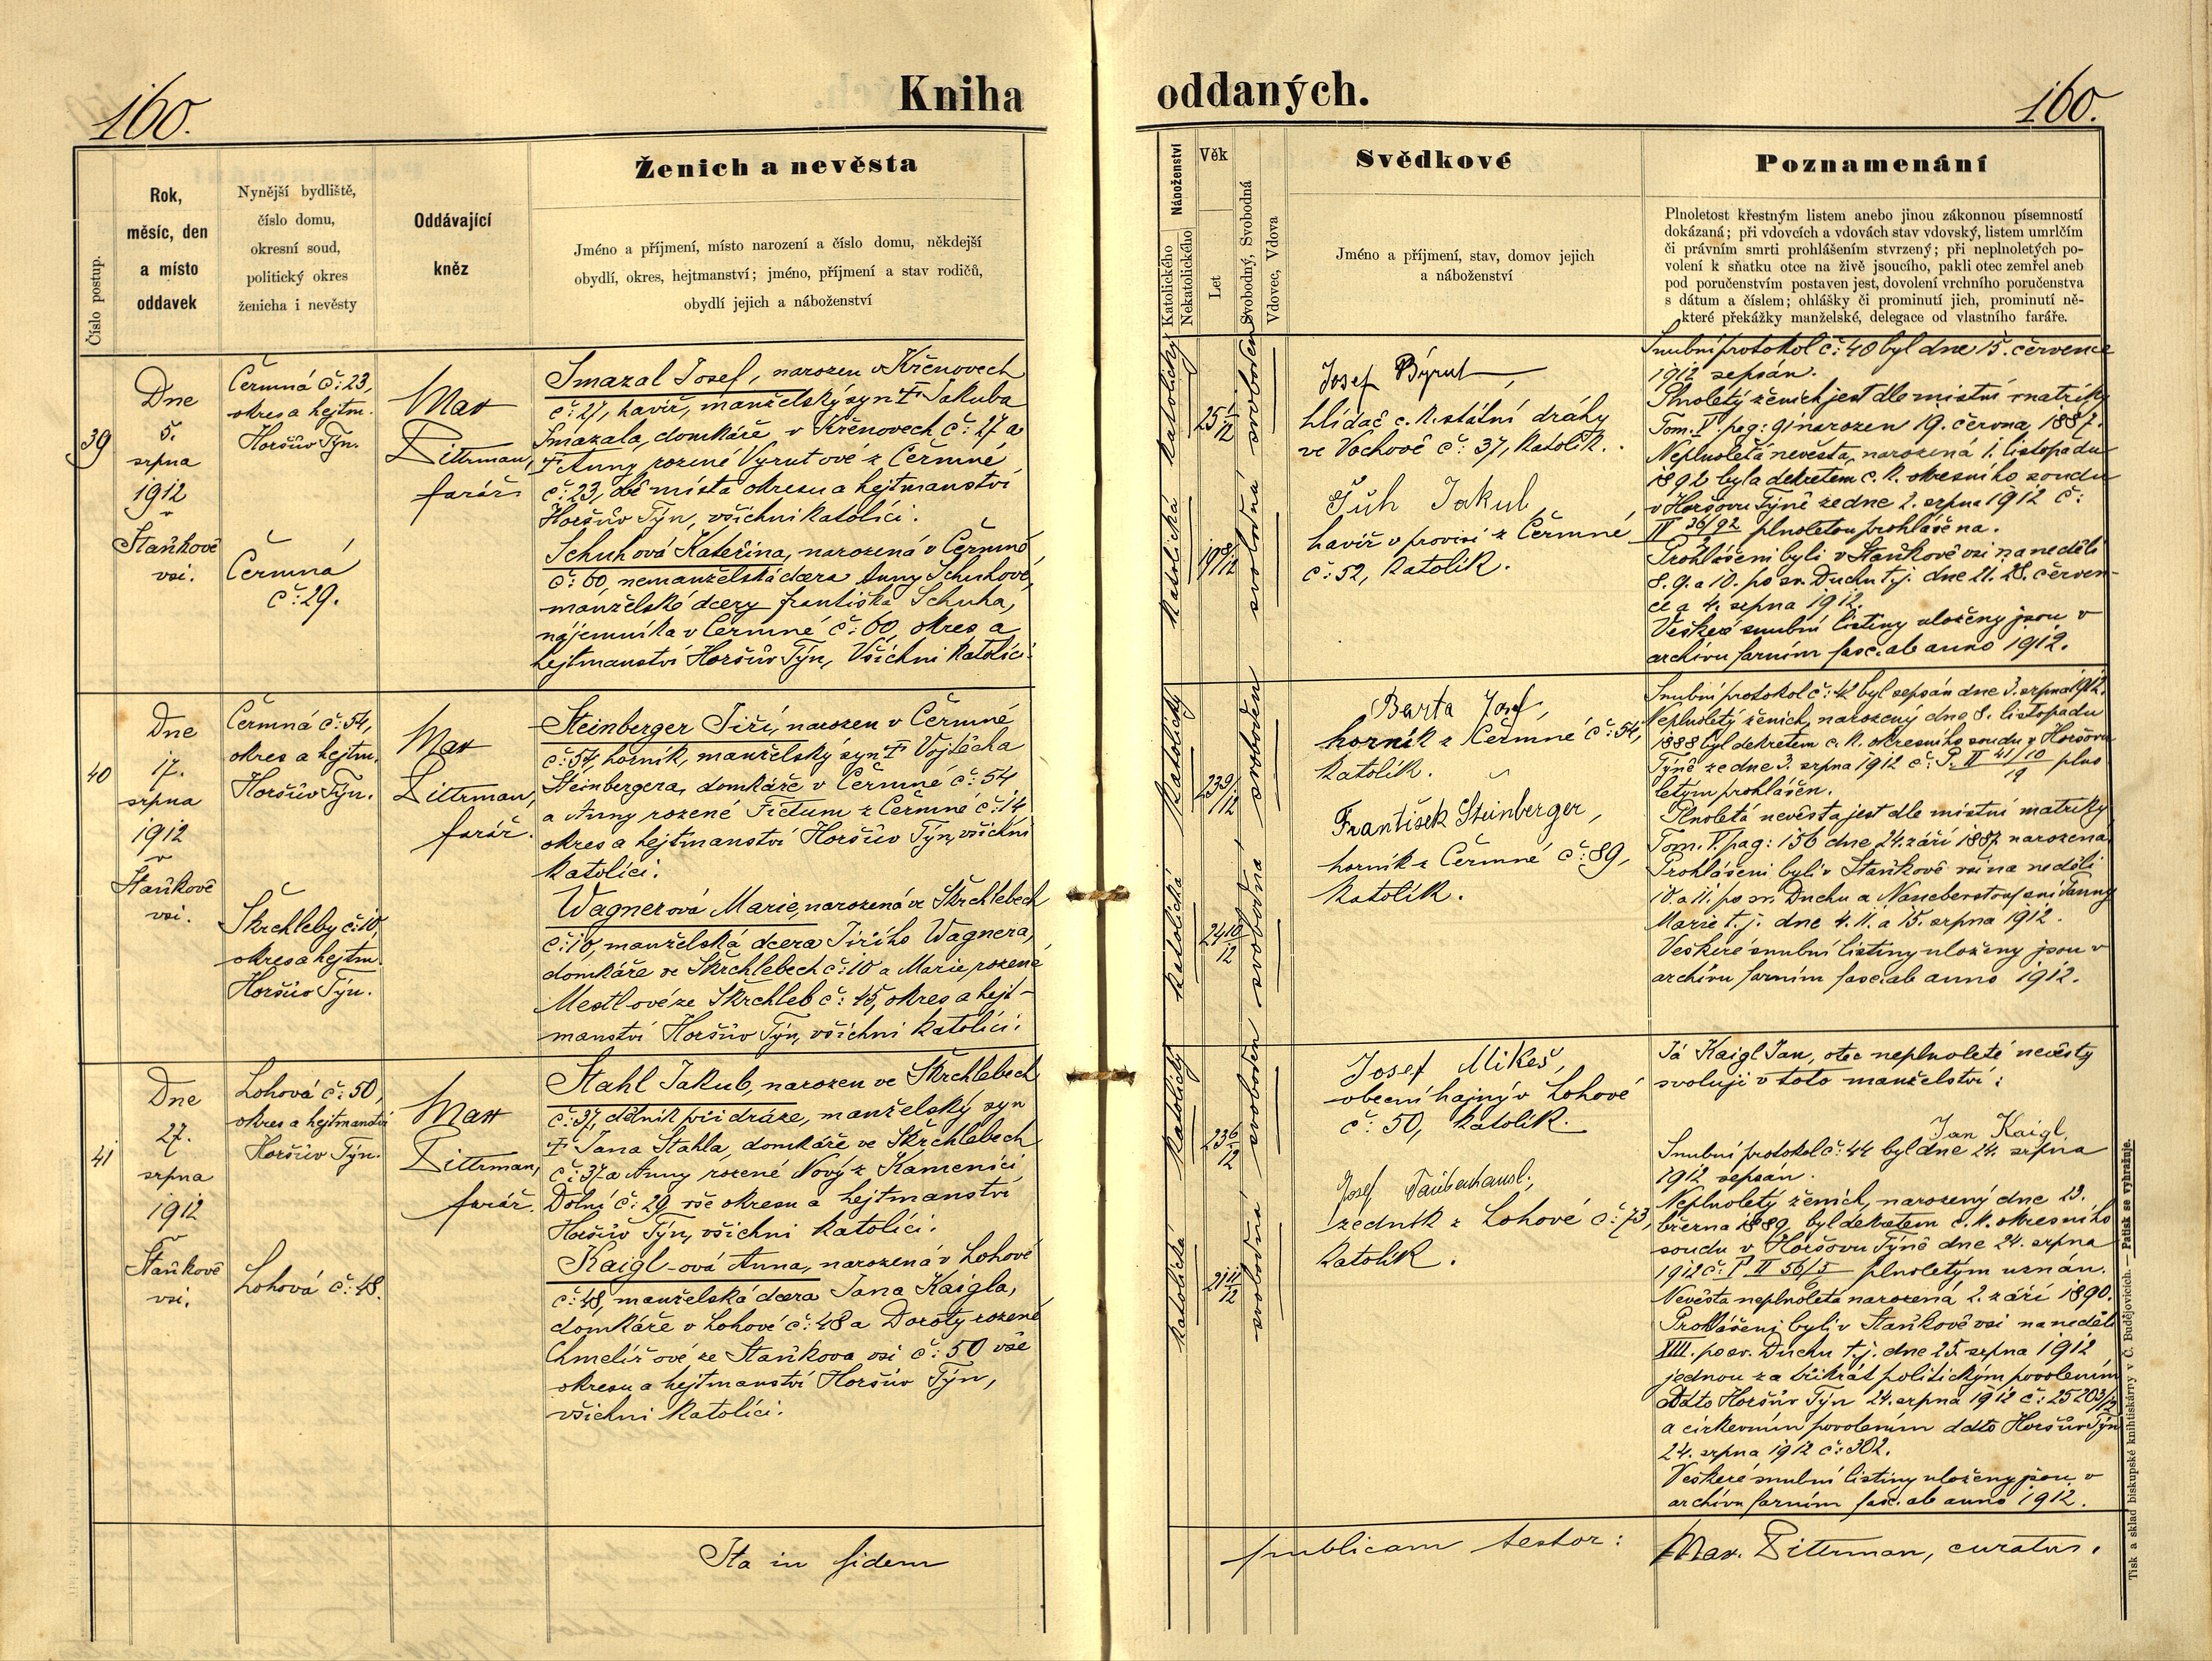 160.
Kniha
oddaných.
160.
Číslo postup.
Rok,
měsíc, den
a místo
oddavek
Nynější bydliště,
číslo domu,
okresní soud,
politický okres
ženicha i nevěsty
Oddávající
kněz
Ženich a nevěsta
Jméno a příjmení, místo narození a číslo domu, někdejší
obydlí, okres, hejtmanství; jméno, příjmení a stav rodičů,
obydlí jejich a náboženství
Náboženství
Katolického
Nekatolického
Věk
Let
Svobodný, Svobodná
Vdovec, Vdova
Svědkové
Jméno a příjmení, stav, domov jejich
a náboženství
Poznamenání
Plnoletost křestným listem anebo jinou zákonnou písemností
dokázaná; při vdovcích a vdovách stav vdovský, listem umrlčím
či právním smrti prohlášením stvrzený; při neplnoletých po-
volení k sňatku otce na živě jsoucího, pakli otec zemřel aneb
pod poručenstvím postaven jest, dovolení vrchního poručenstva
s dátum a číslem; ohlášky či prominutí jich, prominutí ně-
které překážky manželské, delegace od vlastního faráře.
39
Dne
5.
srpna
1912
v
Staňkově
vsi.
Čermná č: 23,
okres a hejtm.
Horšův Týn.
Čermná
č: 29.
Max
Dittrman,
farář
Smazal Josef, narozen v Křenovech
č: 27, havíř, manželský syn † Jakuba
Smazala, domkáře v Křenovech č: 27 a
† Anny rozené Vyrutové z Čermné
č: 23, obě místa okresu a hejtmanství
Horšův Týn, všichni katolíci.
Schuhová Kateřina, narozená v Čermné
č: 60, nemanželská dcera Anny Schuhové,
manželské dcery Františka Schuha,
nájemníka v Čermné č: 60, okres a
hejtmanství Horšův Týn, Všichni katolíci.
katolický
katolická
25 1/12
19 8/12
svoboden
svobodná
Josef Býrut
hlídač c. k. státní dráhy
ve Vochově č: 37, katolík.
Šúh Jakub,
havíř v provisi z Čermné
č: 52, katolík.
Snubní protokol č: 40 byl dne 15. července
1912 sepsán.
Plnoletý ženich jest dle místní matriky
Tom. V. pag: 91 narozen 19. června 1887.
Neplnoletá nevěsta, narozená 1. listopadu
1892 byla dekretem c. k. okresního soudu
v Horšovu Týně ze dne 2. srpna 1912 č:
plnoletou prohlášena.
Prohlášeni byli v Staňkově vsi na neděli
8. 9. a 10. po sv. Duchu t. j. dne 21. 28. červen-
ce a 4. srpna 1912.
Veškeré snubní listiny uloženy jsou v
archivu farním fasc. ab anno 1912.
40
Dne
17.
srpna
1912
v
Staňkově
vsi.
Čermná č: 54,
okres a hejtm.
Horšův Týn.
Škrchleby č: 10,
okres a hejtm.
Horšův Týn.
Max
Dittrman,
farář.
Steinberger Jiří, narozen v Čermné
č: 54, horník, manželský syn † Vojtěcha
Steinbergera, domkáře v Čermné č: 54
a Anny rozené Fictum z Čermné č: 14
okres a hejtmanství Horšův Týn, všichni
katolíci.
Wagnerová Marie, narozená ve Škrchlebech
č: 10, manželská dcera Jiřího Wagnera,
domkáře ve Škrchlebech č: 10 a Marie rozené
Mestl-ové ze Škrchleb č: 45, okres a hejt-
manství Horšův Týn, všichni katolíci.
katolický
katolická
23 9/12
24 10/12
svoboden
svobodná
Barta Josef,
horník z Čermné č: 54,
katolík.
František Steinberger,
horník z Čermné č: 89,
katolík.
Snubní protokol č: 42 byl sepsán dne 3. srpna 1912.
Neplnoletý ženich, narozený dne 8. listopadu
1888 byl dekretem c. k. okresního soudu v Horšovu
Týně ze dne 3. srpna 1912 č: P. II 41/10 19 plno
letým prohlášen.
Plnoletá nevěsta jest dle místní matriky
Tom. V. pag: 156 dne 24. září 1887 narozena
Prohlášeni byli v Staňkově vsi na neděli
10. a 11. po sv. Duchu a Nanebevstoupení Panny
Marie t. j. dne 4. 11. a 15. srpna 1912.
Veškeré snubní listiny uloženy jsou v
archivu farním fasc. ab anno 1912.
41
Dne
27.
srpna
1912
v
Staňkově
vsi.
Lohová č: 50,
okres a hejtmanství
Horšův Týn.
Lohová č: 48.
Max
Dittrman,
farář.
Stahl Jakub, narozen ve Škrchlebech
č: 37, dělník při dráze, manželský syn
† Jana Stahla, domkáře ve Škrchlebech
č: 37 a Anny rozené Nový z Kamenici
Dolní č: 29, vše okresu a hejtmanství
Horšův Týn, všichni katolíci.
Kaigl-ová Anna, narozená v Lohové
č: 48, manželská dcera Jana Kaigla,
domkáře v Lohové č: 48 a Doroty rozené
Chmelířové ze Staňkova vsi č: 50 vše
okresu a hejtmanství Horšův Týn,
všichni katolíci.
katolický
katolická
23 6/12
21 11/12
svoboden
svobodná
Josef Mikeš,
obecní hajný v Lohové
č: 50, katolík.
Josef Taubenhansl,
zedník z Lohové č: 73,
katolík.
Já Kaigl Jan, otec neplnoleté nevěsty
svoluji v toto manželství:
Jan Kaigl.
Snubní protokol č: 44 byl dne 24. srpna
1912 sepsán.
Neplnoletý ženich, narozený dne 23.
března 1889, byl dekretem c. k. okresního
soudu v Horšovu Týně dne 24. srpna
1912 č: P II 56/5 plnoletým uznán.
Nevěsta neplnoletá narozená 2. září 1890.
Prohlášeni byli v Staňkově vsi na neděli
XIII. po sv. Duchu t. j. dne 25. srpna 1912
jednou za třikrát politickým povolením
ddto Horšův Týn 24. srpna 1912 č: 25203/12
a církevním povolením ddto Horšův Týn
24. srpna 1912 č: 302.
Veškeré snubní listiny uloženy jsou v
archivu farním fasc. ab anno 1912.
Ita in fidem
publicam testor:
Max. Dittrman, curatus.
Tisk a sklad biskupské knihtiskárny v Č. Budějovicích. — Patisk se vyhražuje.